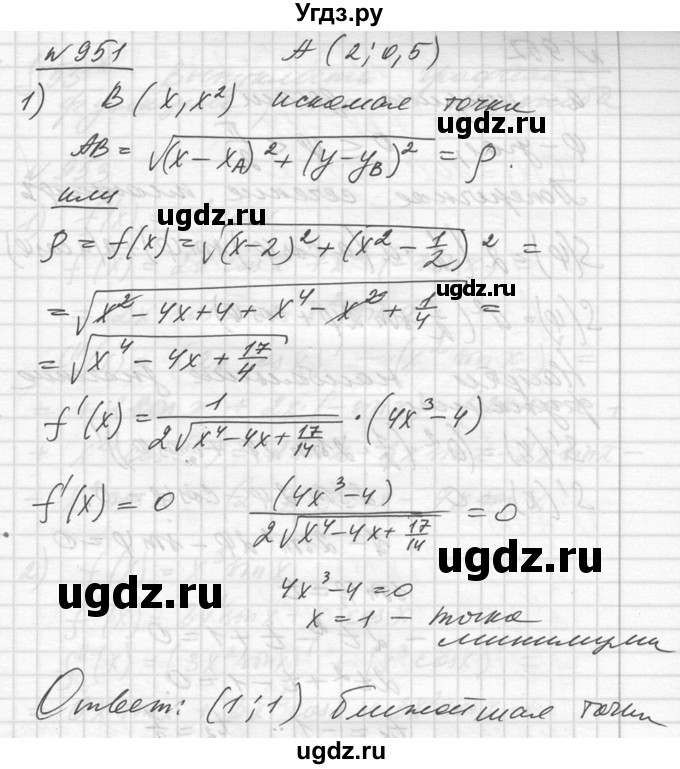 Угдз.ру
№951 A(2;0,5)
1) B(x, x²) искомая точка
угдз.ru
AB = √((x-x_A)² + (y-y_B)²) = ρ.
или
угдз.ru
ρ = f(x) = √((x-2)² + (x² - 1/2))² =
угдз.ru
= √(x² - 4x + 4 + x⁴ - x² + 1/4) =
= √(x⁴ - 4x + 17/4)
f'(x) = 1/(2√(x⁴-4x+17/14)) · (4x³-4)
f'(x) = 0 (4x³-4)/(2√(x⁴-4x+17/14)) = 0
угдз.ru угдз.ru
4x³-4=0
x=1 - точка
минимума
Ответ: (1;1) ближайшая точка
угдз.ru